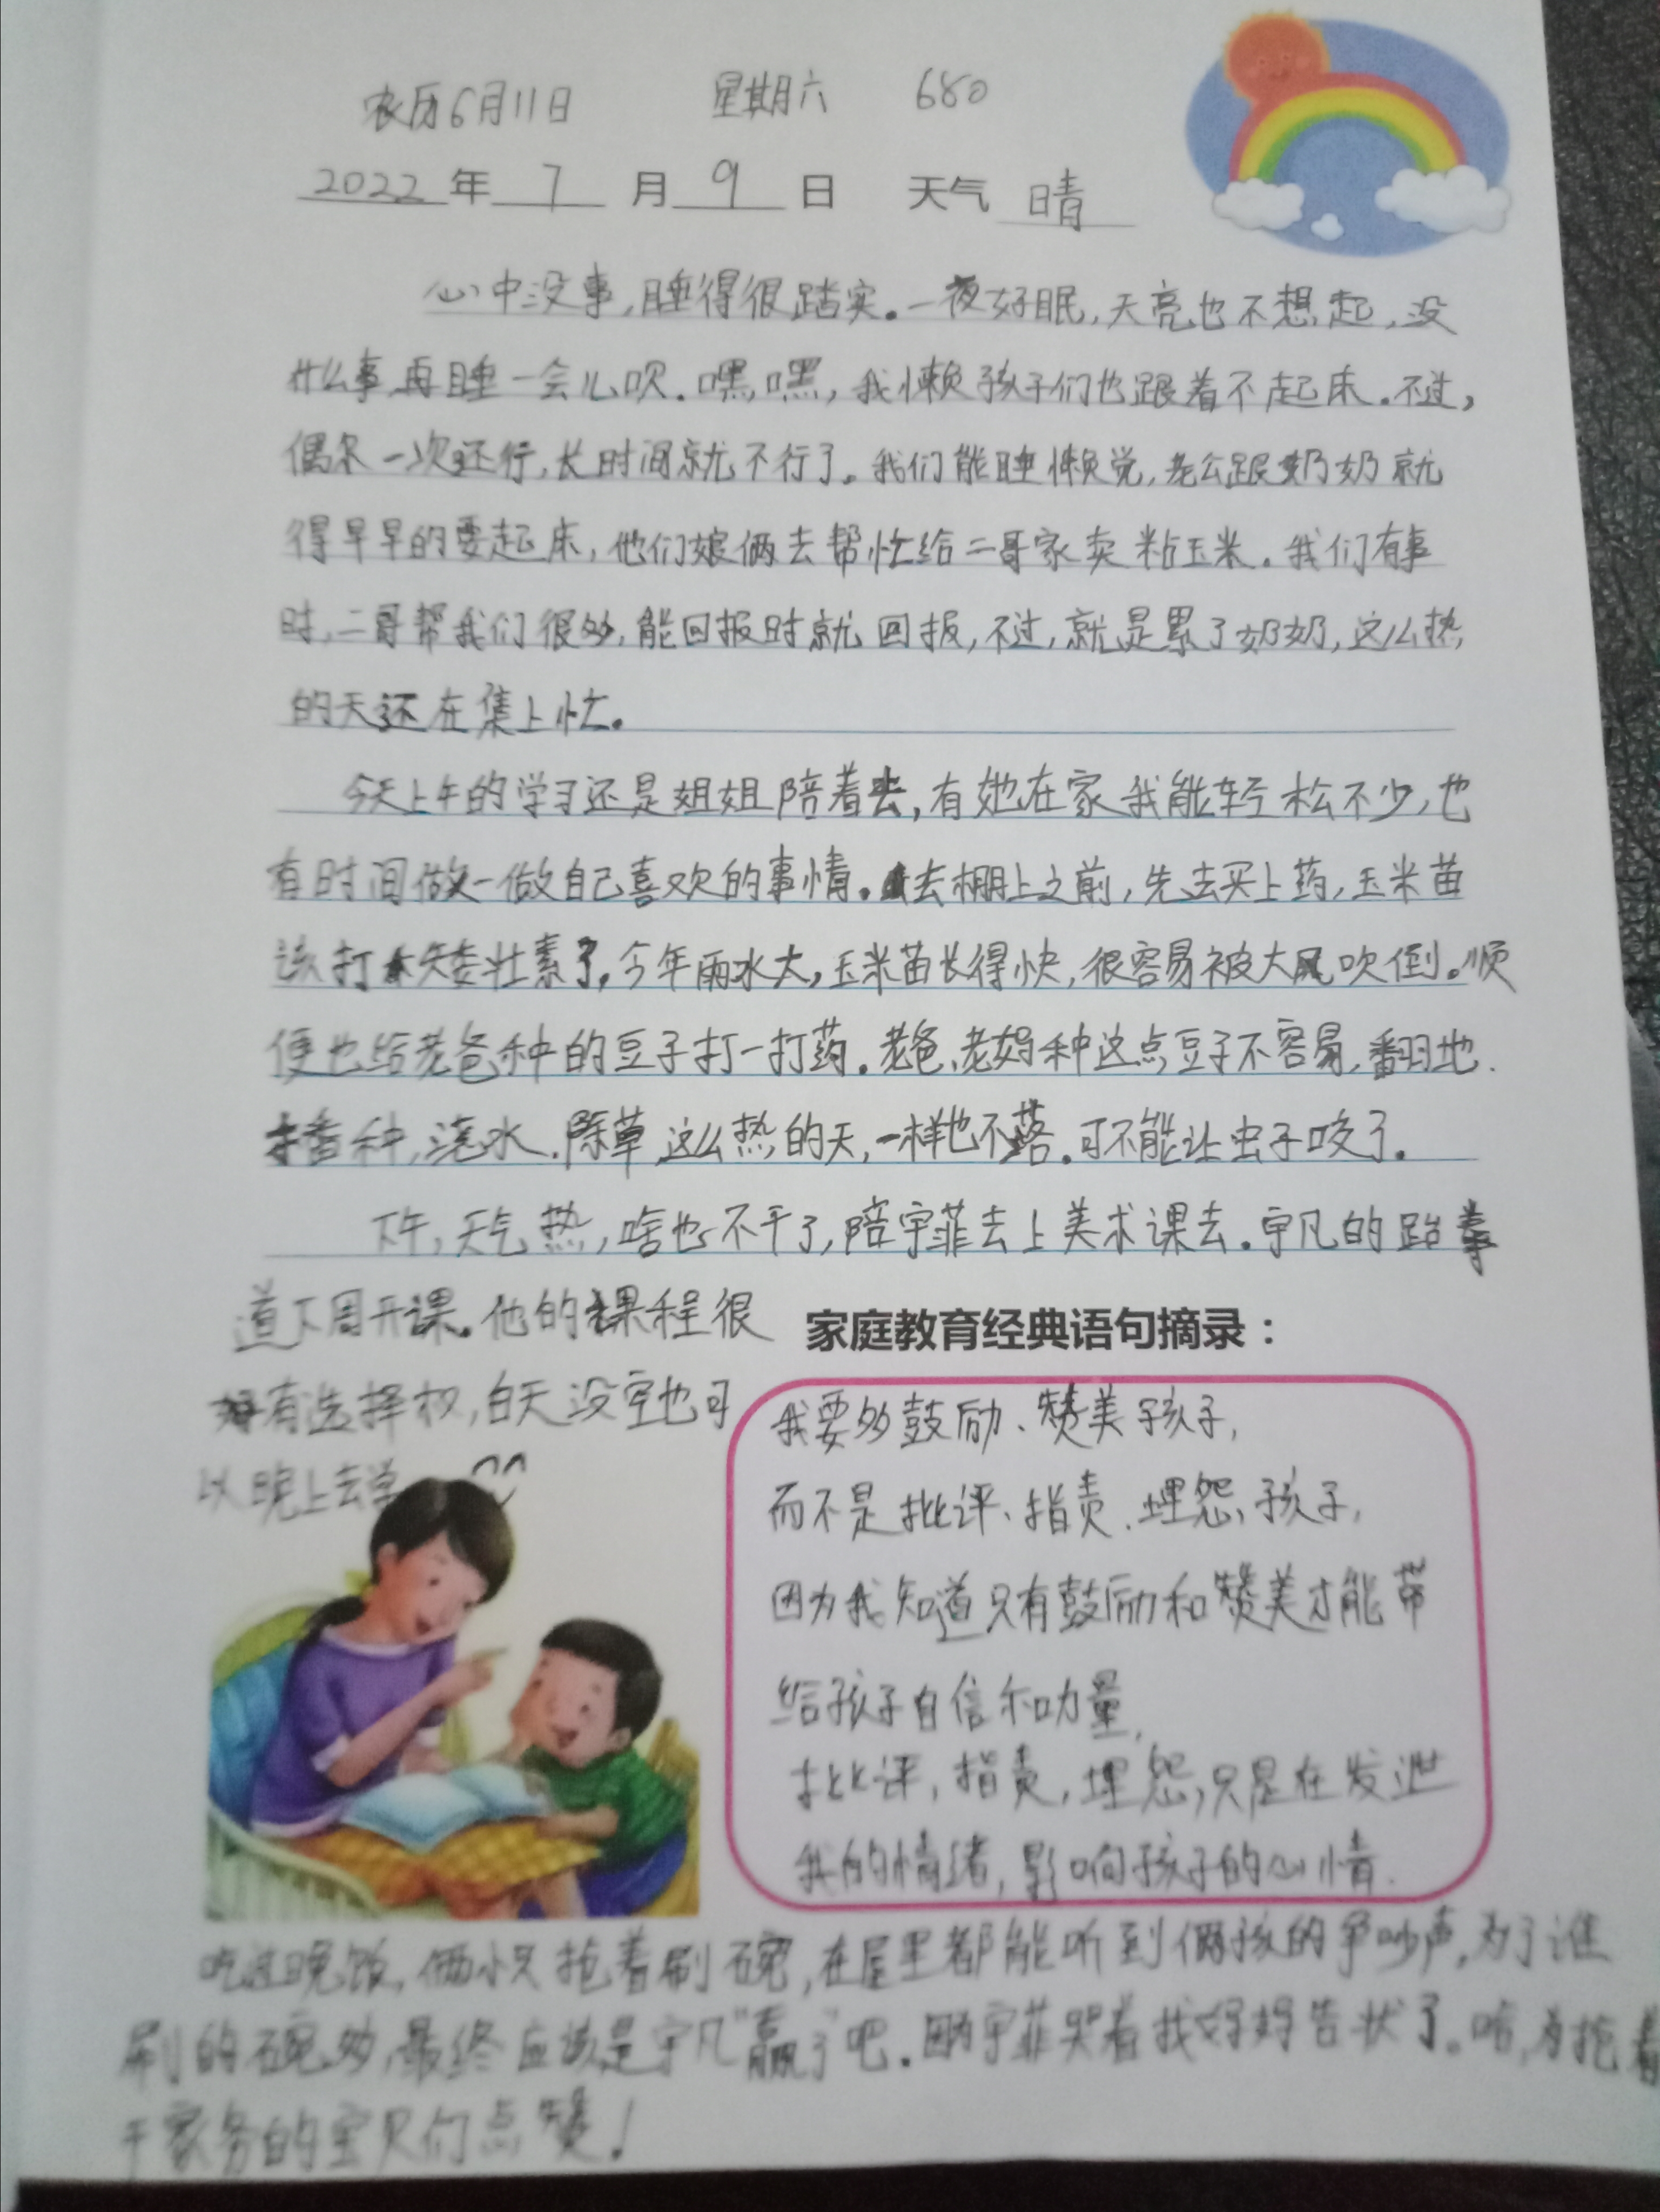 农历6月11日 星期六 680
2022年7月9日 天气 晴
心中没事,睡得很踏实。一夜好眠,天亮也不想起,没
什么事,再睡一会儿呗.嘿嘿,我懒孩子们也跟着不起床.不过,
偶尔一次还行,长时间就不行了。我们能睡懒觉,老公跟奶奶就
得早早的要起床,他们娘俩去帮忙给二哥家卖粘玉米.我们有事
时,二哥帮我们很多,能回报时就回报,不过,就是累了奶奶,这么热
的天还在集上忙.
今天上午的学习还是姐姐陪着去,有她在家我能轻松不少,也
有时间做一做自己喜欢的事情.去棚上之前,先去买上药,玉米苗
该打矮壮素了.今年雨水大,玉米苗长得快,很容易被大风吹倒.顺
便也给老爸种的豆子打一打药.老爸、老妈种这点豆子不容易,翻地.
播种,浇水.除草,这么热的天,一样也不落.可不能让虫子咬了.
下午,天气热,啥也不干了,陪宇菲去上美术课去.宇凡的跆拳
道下周开课.他的课程很
有选择权,白天没空也可
以晚上去学
家庭教育经典语句摘录：
我要多鼓励、赞美孩子,
而不是批评、指责、埋怨,孩子,
因为我知道只有鼓励和赞美才能带
给孩子自信和力量,
批评,指责,埋怨,只是在发泄
我的情绪,影响孩子的心情.
吃过晚饭,俩小只抢着刷碗,在屋里都能听到俩孩的争吵声,为了谁
刷的碗多,最终应该是宇凡“赢了”吧.因为宇菲哭着找妈妈告状了.哈,为抢着
干家务的宝贝们点赞!